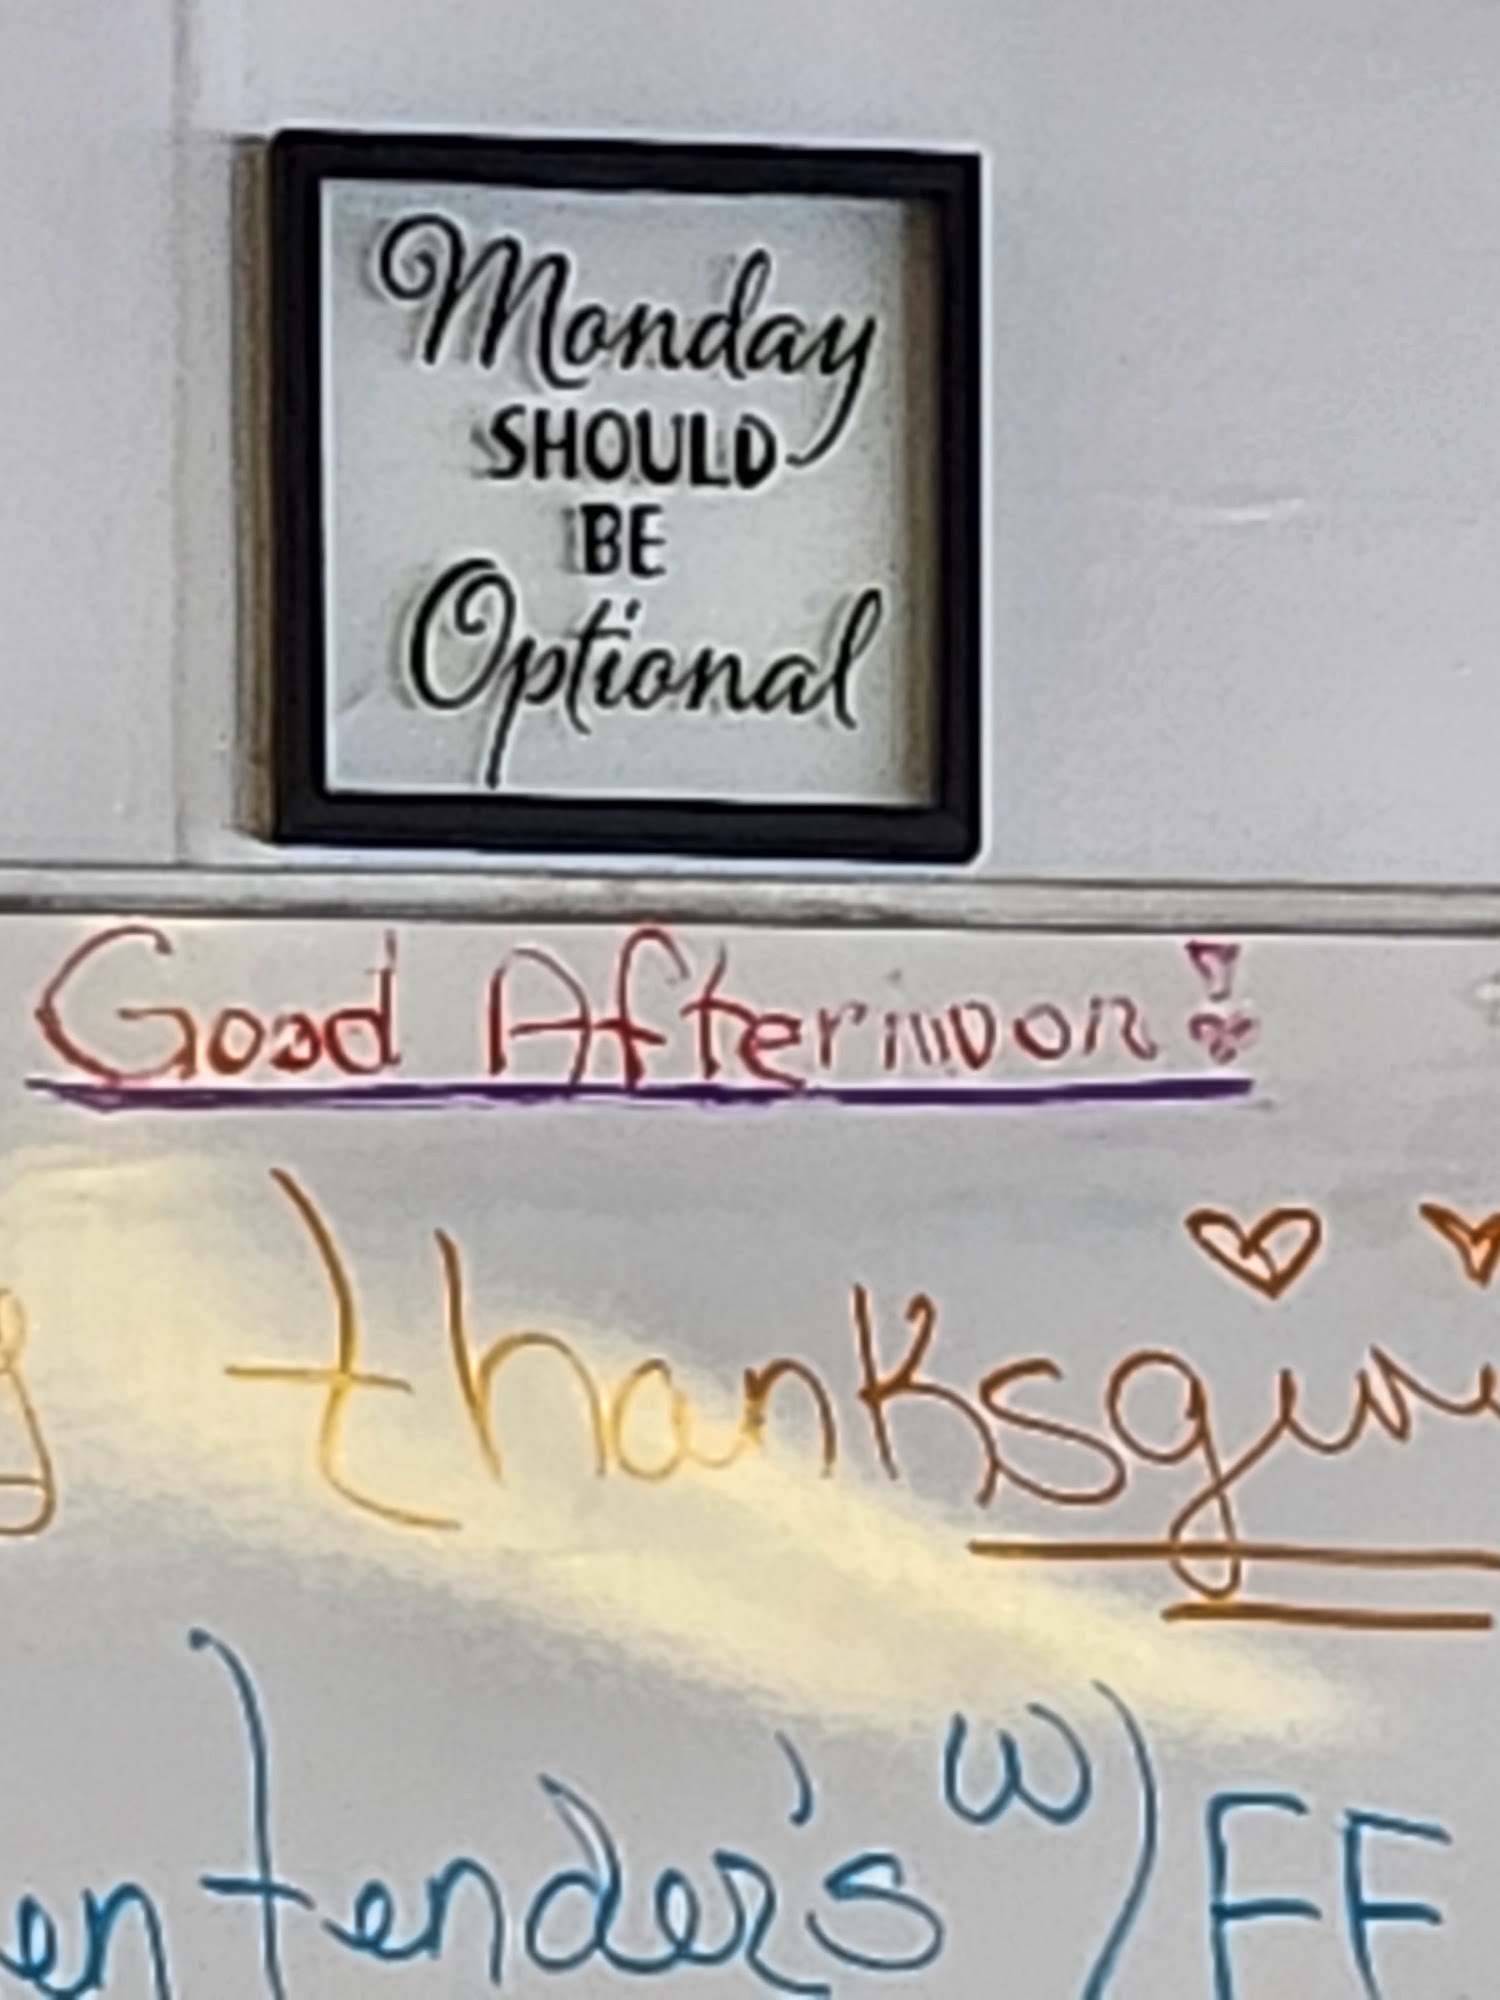 Monday
SHOULD
BE
Optional
Good Afternoon!
g thanksgivi
en tender's w/FF